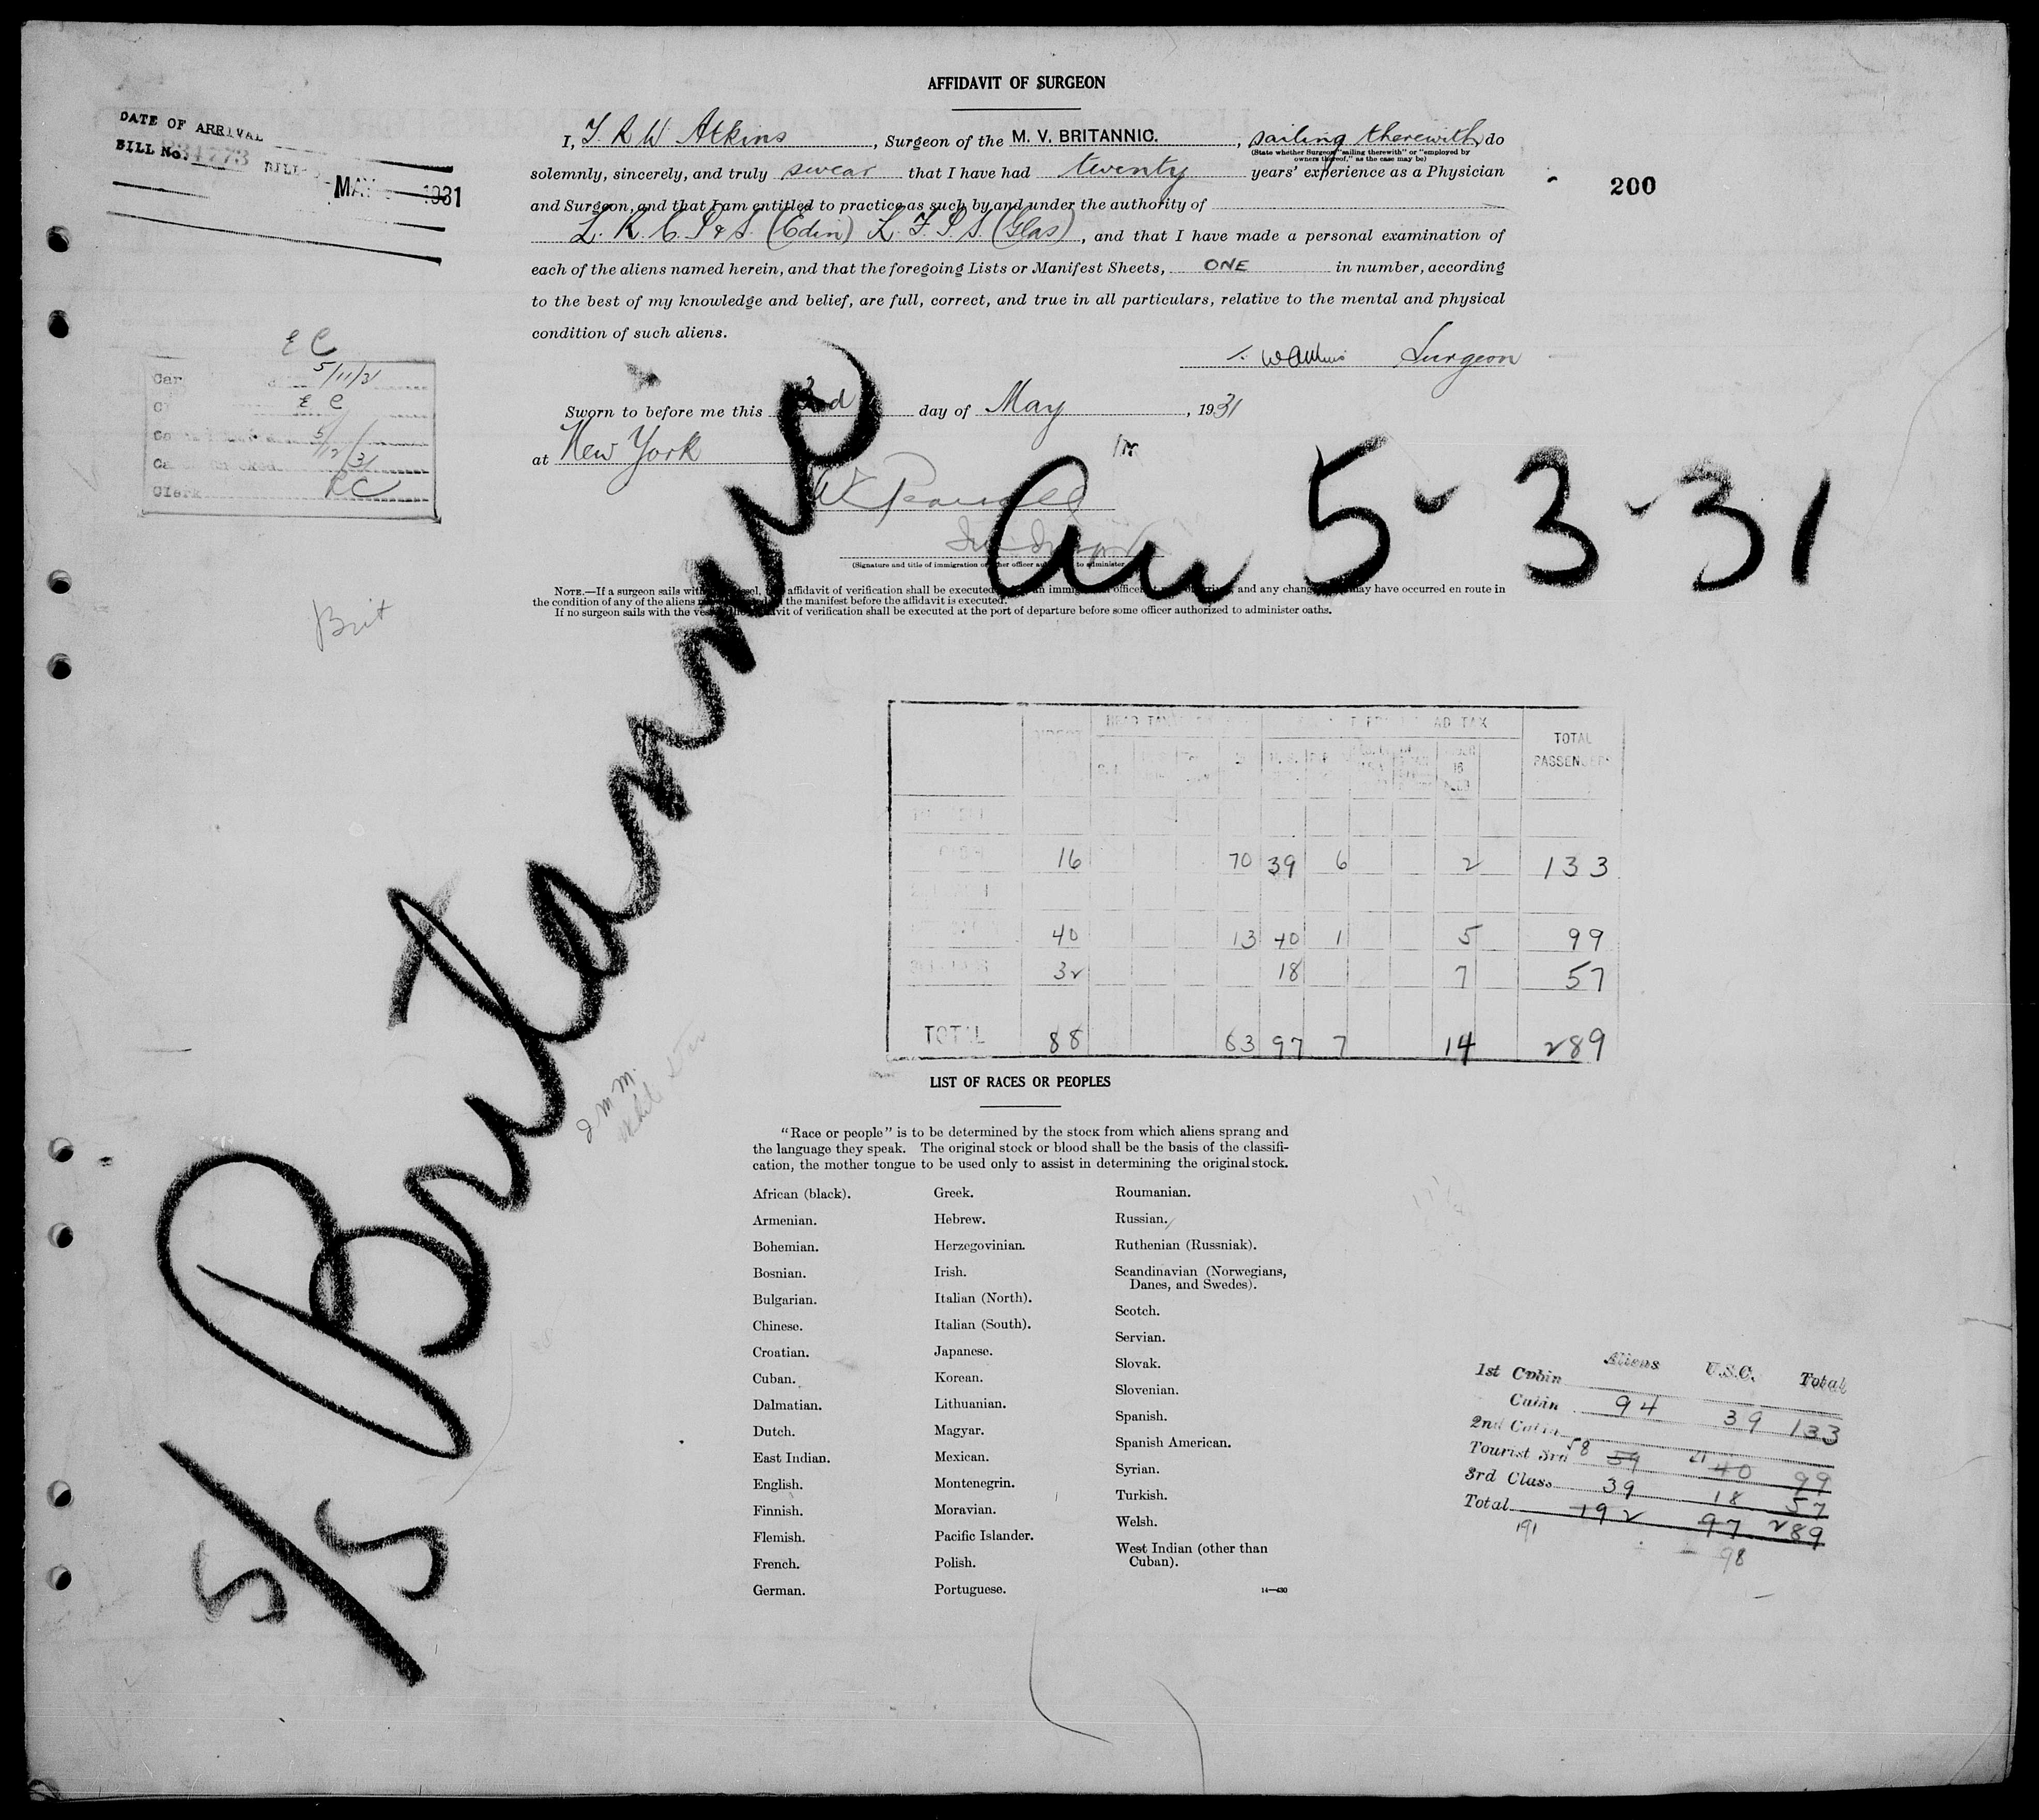 AFFIDAVIT OF SURGEON
DATE OF ARRIVAL
BILL No. 34773
MAY 1931
200
I, T. R W Atkins, Surgeon of the M. V. BRITANNIC., sailing therewith, do
(State whether Surgeon "sailing therewith" or "employed by
owners thereof," as the case may be)
solemnly, sincerely, and truly swear that I have had twenty years' experience as a Physician
and Surgeon, and that I am entitled to practice as such by and under the authority of
L. R. C. P & S. (Edin) L. F. P. S. (Glas), and that I have made a personal examination of
each of the aliens named herein, and that the foregoing Lists or Manifest Sheets, ONE in number, according
to the best of my knowledge and belief, are full, correct, and true in all particulars, relative to the mental and physical
condition of such aliens.
W Atkins Surgeon
Sworn to before me this 3rd day of May, 1931
at New York
E C
5/11/31
E C
5/12/31
Clerk RC
Brit
Britannic
5/5
Arr 5-3-31
(Signature and title of immigration or other officer to administer
NOTE.—If a surgeon sails with vessel, affidavit of verification shall be executed an officer and any change may have occurred en route in
the condition of any of the aliens the manifest before the affidavit is executed.
If no surgeon sails with the vessel affidavit of verification shall be executed at the port of departure before some officer authorized to administer oaths.
HEAD TAX HEAD TAX TOTAL
PASSENGERS
16 70 39 6 2 133
40 13 40 1 5 99
32 18 7 57
TOTAL 88 63 97 7 14 289
LIST OF RACES OR PEOPLES
"Race or people" is to be determined by the stock from which aliens sprang and
the language they speak. The original stock or blood shall be the basis of the classifi-
cation, the mother tongue to be used only to assist in determining the original stock.
African (black).
Armenian.
Bohemian.
Bosnian.
Bulgarian.
Chinese.
Croatian.
Cuban.
Dalmatian.
Dutch.
East Indian.
English.
Finnish.
Flemish.
French.
German.
Greek.
Hebrew.
Herzegovinian.
Irish.
Italian (North).
Italian (South).
Japanese.
Korean.
Lithuanian.
Magyar.
Mexican.
Montenegrin.
Moravian.
Pacific Islander.
Polish.
Portuguese.
Roumanian.
Russian.
Ruthenian (Russniak).
Scandinavian (Norwegians,
Danes, and Swedes).
Scotch.
Servian.
Slovak.
Slovenian.
Spanish.
Spanish American.
Syrian.
Turkish.
Welsh.
West Indian (other than
Cuban).
14—430
Aliens U.S.C. Total
1st Cabin
Cabin 94 39 133
2nd Cabin
Tourist 3rd 58 59 41 40 99
3rd Class 39 18 57
Total 192 97 289
191 98